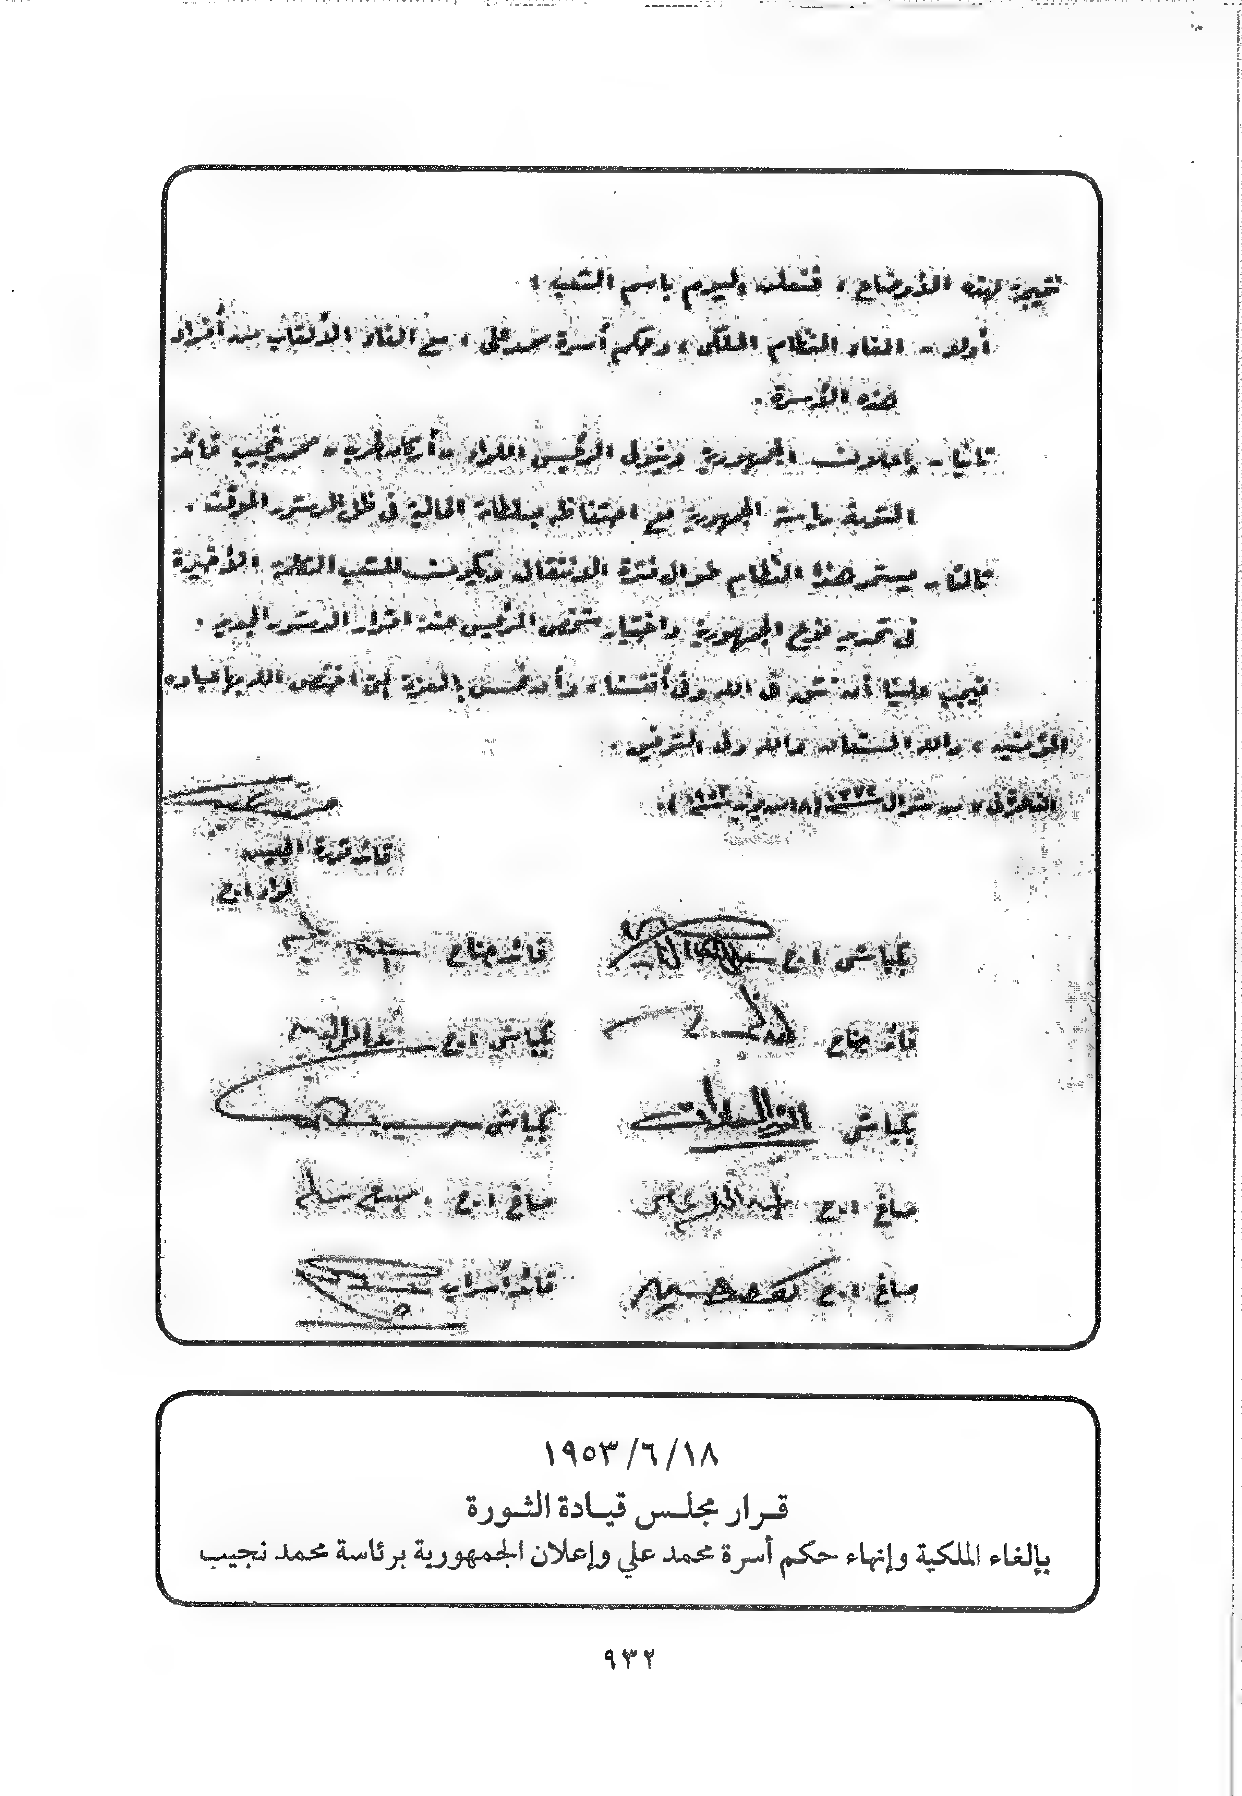 تغيير لهذه الأوضاع ، فنعلن اليوم باسم الشعب :
أولا - الغاء النظام الملكى ، وحكم أسرة محمد على ، مع الغاء الألقاب من أفراد
هذه الأسرة .
ثانيا - إعلان الجمهورية وتولى الرئيس اللواء - أركان حرب - محمد نجيب قائد
الثورة رياسة الجمهورية مع احتفاظه بسلطاته الحالية فى ظل الدستور المؤقت .
ثالثا - يستمر هذا النظام طوال فترة الانتقال ويكون للشعب الكلمة الأخيرة
فى تحديد نوع الجمهورية واختيار شخص الرئيس عند اقرار الدستور الجديد .
فيجب علينا أن نثق فى الله وفى أنفسنا ، وأن نحس بالعزة التى اختص الله بها عباده
المؤمنين ، والله المستعان والله ولى التوفيق .
القاهرة فى ٧ من شوال ١٣٧٢ (١٨ من يونيه ١٩٥٣)
قائد ثورة الجيش
لواء ا.ح
بكباشى ا.ح جمال
قائد جناح
قائد جناح
بكباشى ا.ح
بكباشى أنور السادات
بكباشى
صاغ ا.ح عبد الحكيم
صاغ ا.ح صلاح سالم
صاغ ا.ح
قائد أسراب
١٨/٦/١٩٥٣
قرار مجلس قيادة الثورة
بإلغاء الملكية وإنهاء حكم أسرة محمد علي وإعلان الجمهورية برئاسة محمد نجيب
٩٣٢